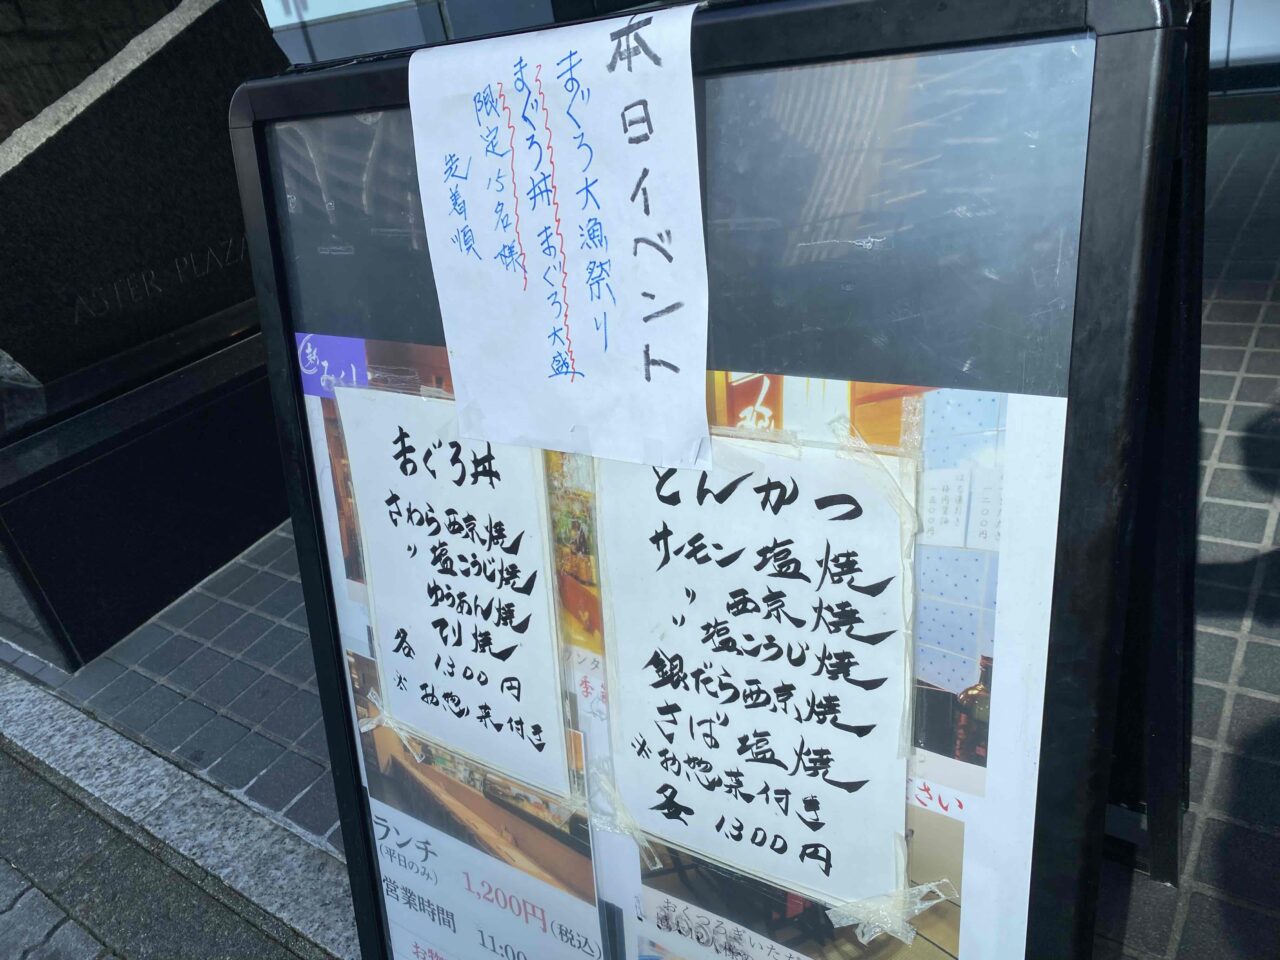 本日イベント
まぐろ大漁祭り
まぐろ丼 まぐろ大盛
限定15名様
先着順
ASTER PLAZA
まぐろ丼
さわら西京焼
〃 塩こうじ焼
ゆうあん焼
てり焼
各 1300円
※ お惣菜付き
とんかつ
サーモン塩焼
〃 西京焼
〃 塩こうじ焼
銀だら西京焼
さば塩焼
※お惣菜付き
各 1300円
さい
ランチ
(平日のみ)
1,200円(税込)
営業時間 11:00
おくつろぎいただ